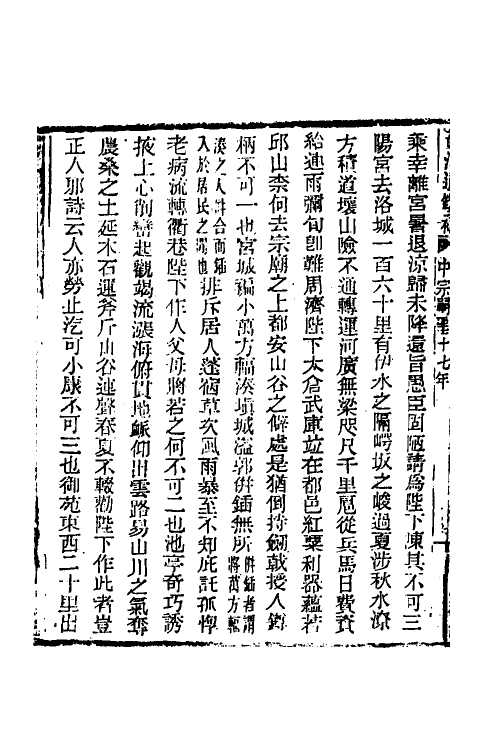 中宗嗣聖十七年
乘幸離宮暑退涼歸未降還旨愚臣固陋請爲陛下陳其不可三
陽宮去洛城一百六十里有伊水之隔崿坂之峻過夏涉秋水潦
方積道壞山險不通轉運河廣無梁咫尺千里扈從兵馬日費資
給連雨彌旬卽難周濟陛下太倉武庫竝在都邑紅粟利器蘊若
邱山柰何去宗廟之上都安山谷之僻處是猶倒持劒戟授人鐏
柄不可一也宮城褊小萬方輻湊塡城溢郭併鍤無所併鍤者謂將萬方輻
湊之人幷合而鍤入於居民之閒也排斥居人蓬宿草次風雨暴至不知庇託孤惸
老病流轉衢巷陛下作人父母將若之何不可二也池亭奇巧誘
掖上心削巒起觀竭流漲海俯貫地脈仰出雲路易山川之氣奪
農桑之土延木石運斧斤山谷連聲春夏不輟勸陛下作此者豈
正人邪詩云人亦勞止汔可小康不可三也御苑東西二十里出